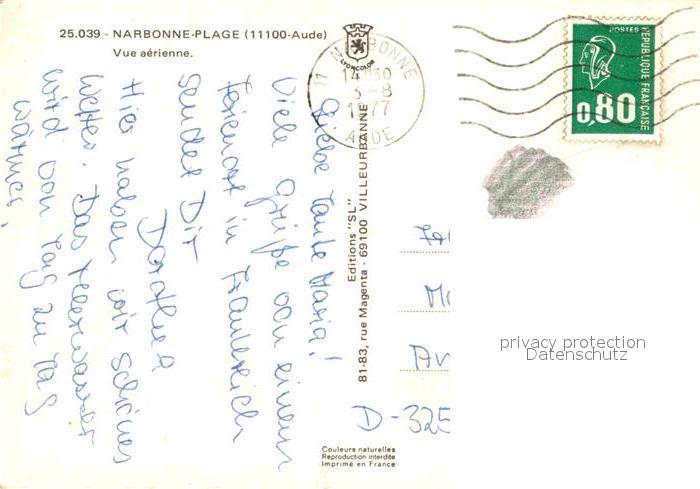 25.039 - NARBONNE-PLAGE (11100-Aude)
Vue aérienne.
LYONCOLOR
11 NARBONNE
14H30
3-8
1977
AUDE
POSTES
RÉPUBLIQUE FRANÇAISE
0,80
Liebe Tante Maria!
Viele Grüße von einem
Ferienort in Frankreich
sendet Dir
Dorothea
Hier haben wir schönes
Wetter. Das Meerwasser
wird von Tag zu Tag
wärmer.
Editions "SL"
81-83, rue Magenta - 69100 VILLEURBANNE
D-325
Couleurs naturelles
Reproduction interdite
Imprimé en France
privacy protection
Datenschutz